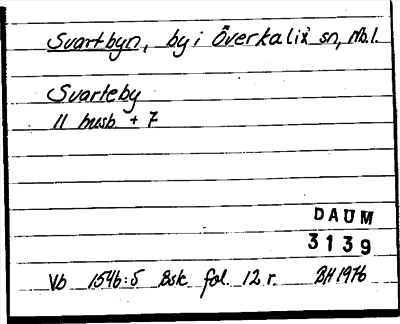 Svartbyn, by i Överkalix sn, Nb.l.
Svarteby
11 husb. + 7
DAUM
3139
Vb 1546:5 Bsk fol. 12 r. BH 1976